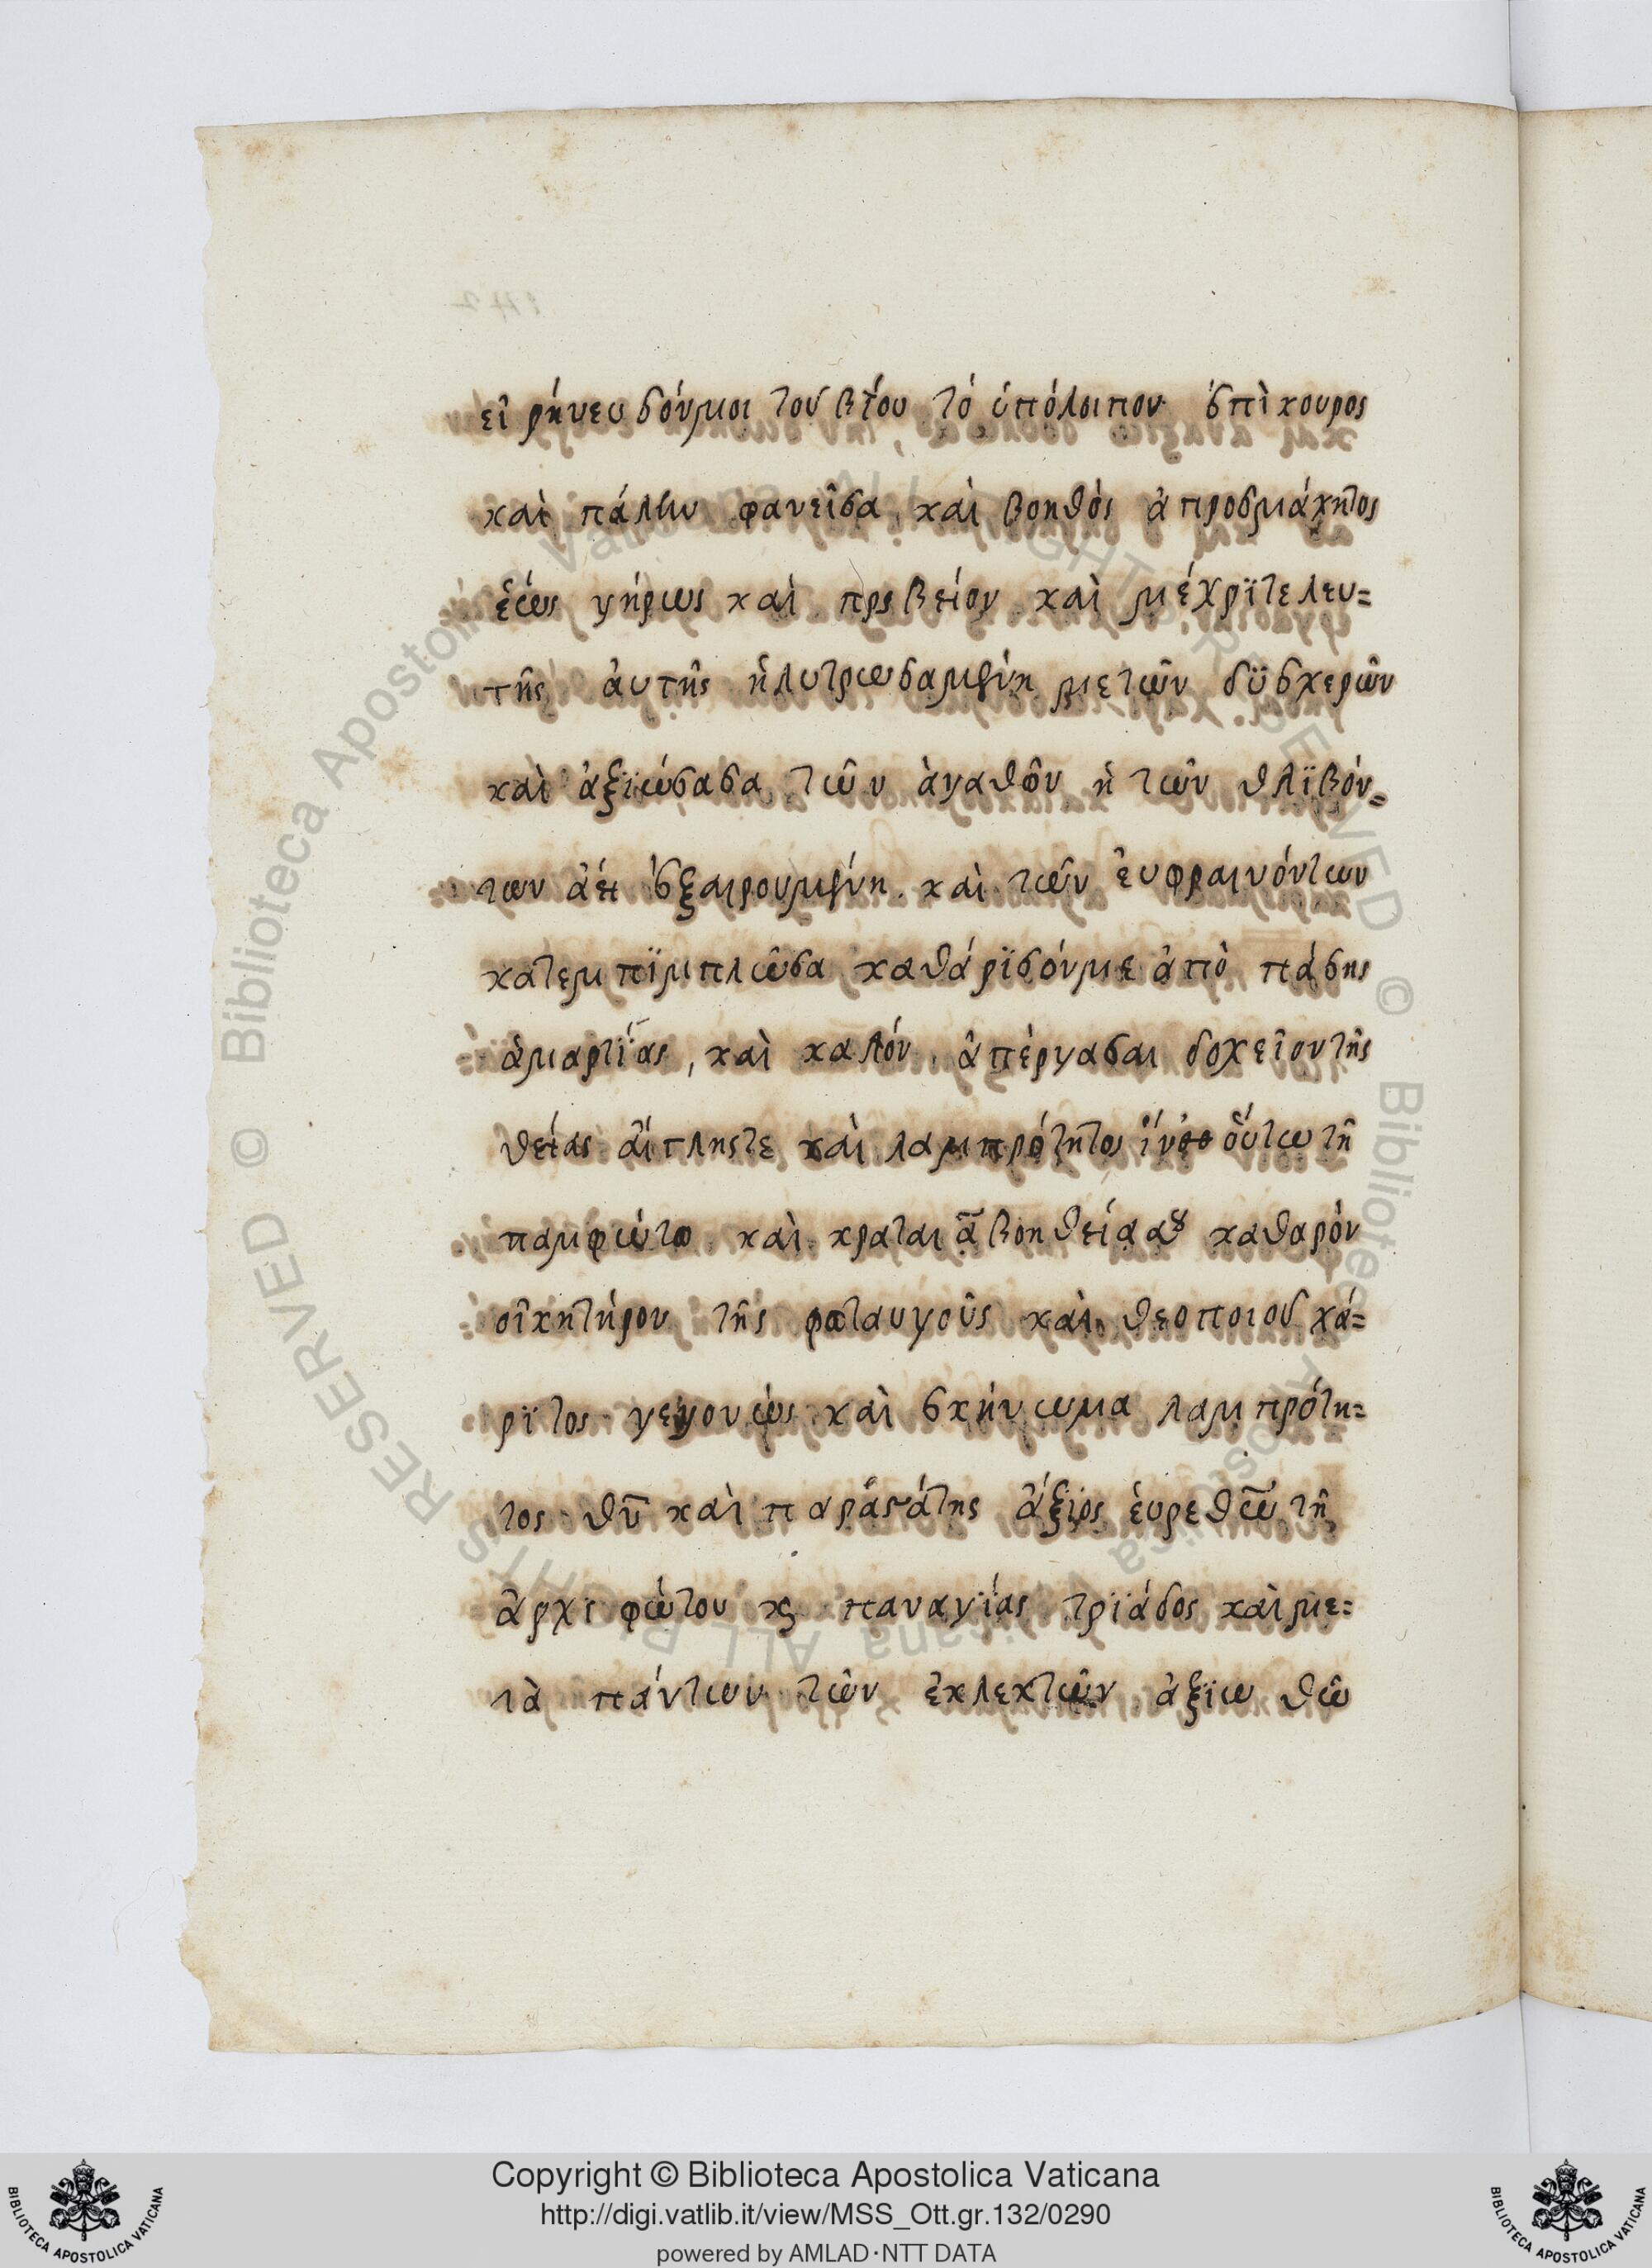 εἰρήνευσόν μοι τοῦ βίου τὸ ὑπόλοιπον ἐπίκουρος
καὶ πάλιν φανεῖσα, καὶ βοηθὸς ἀπροσμάχητος
ἕως γήρως καὶ πρεσβείου καὶ μέχρϊ τελευ=
τῆς αὐτῆς ἡ λυτρωσαμένη με τῶν δϋσχερῶν
καὶ ἀξϊώσασα τῶν ἀγαθῶν ἡ τῶν θλϊβόν=
των ἀεὶ ἐξαιρουμένη καὶ τῶν εὐφραινόντων
κατεμπϊμπλῶσα καθάρϊσόν με ἀπὸ πάσης
ἁμαρτΐας, καὶ καλὸν ἀπέργασαι δοχεῖον τῆς
θείας αἴγλης τε καὶ λαμπρότητος ἵν οὕτω τῆ
παμφώτω καὶ κραταιᾶ βοηθεία σου καθαρὸν
οἰκητήρον τῆς φωταυγοῦς καὶ θεοποιοῦ χά=
ρϊτος γεγονὼς καὶ σκήνωμα λαμπρότη=
τος θῦ καὶ παραστάτης ἄξϊος εὑρεθῶ τῆ
ἀρχιφώτου κ παναγΐας τρϊάδος καὶ με=
τὰ πάντων τῶν ἐκλεκτῶν ἀξϊωθῶ
Copyright © Biblioteca Apostolica Vaticana
http://digi.vatlib.it/view/MSS_Ott.gr.132/0290
powered by AMLAD·NTT DATA
BIBLIOTECA APOSTOLICA VATICANA
BIBLIOTECA APOSTOLICA VATICANA